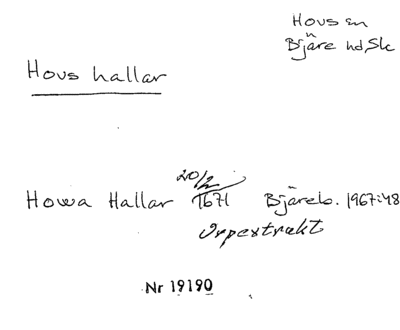 Hovs sn
Bjäre hd, Sk
Hovs hallar
20/2
Howa Hallar 1671 Bjäreb. 1967:48
Nr 19190